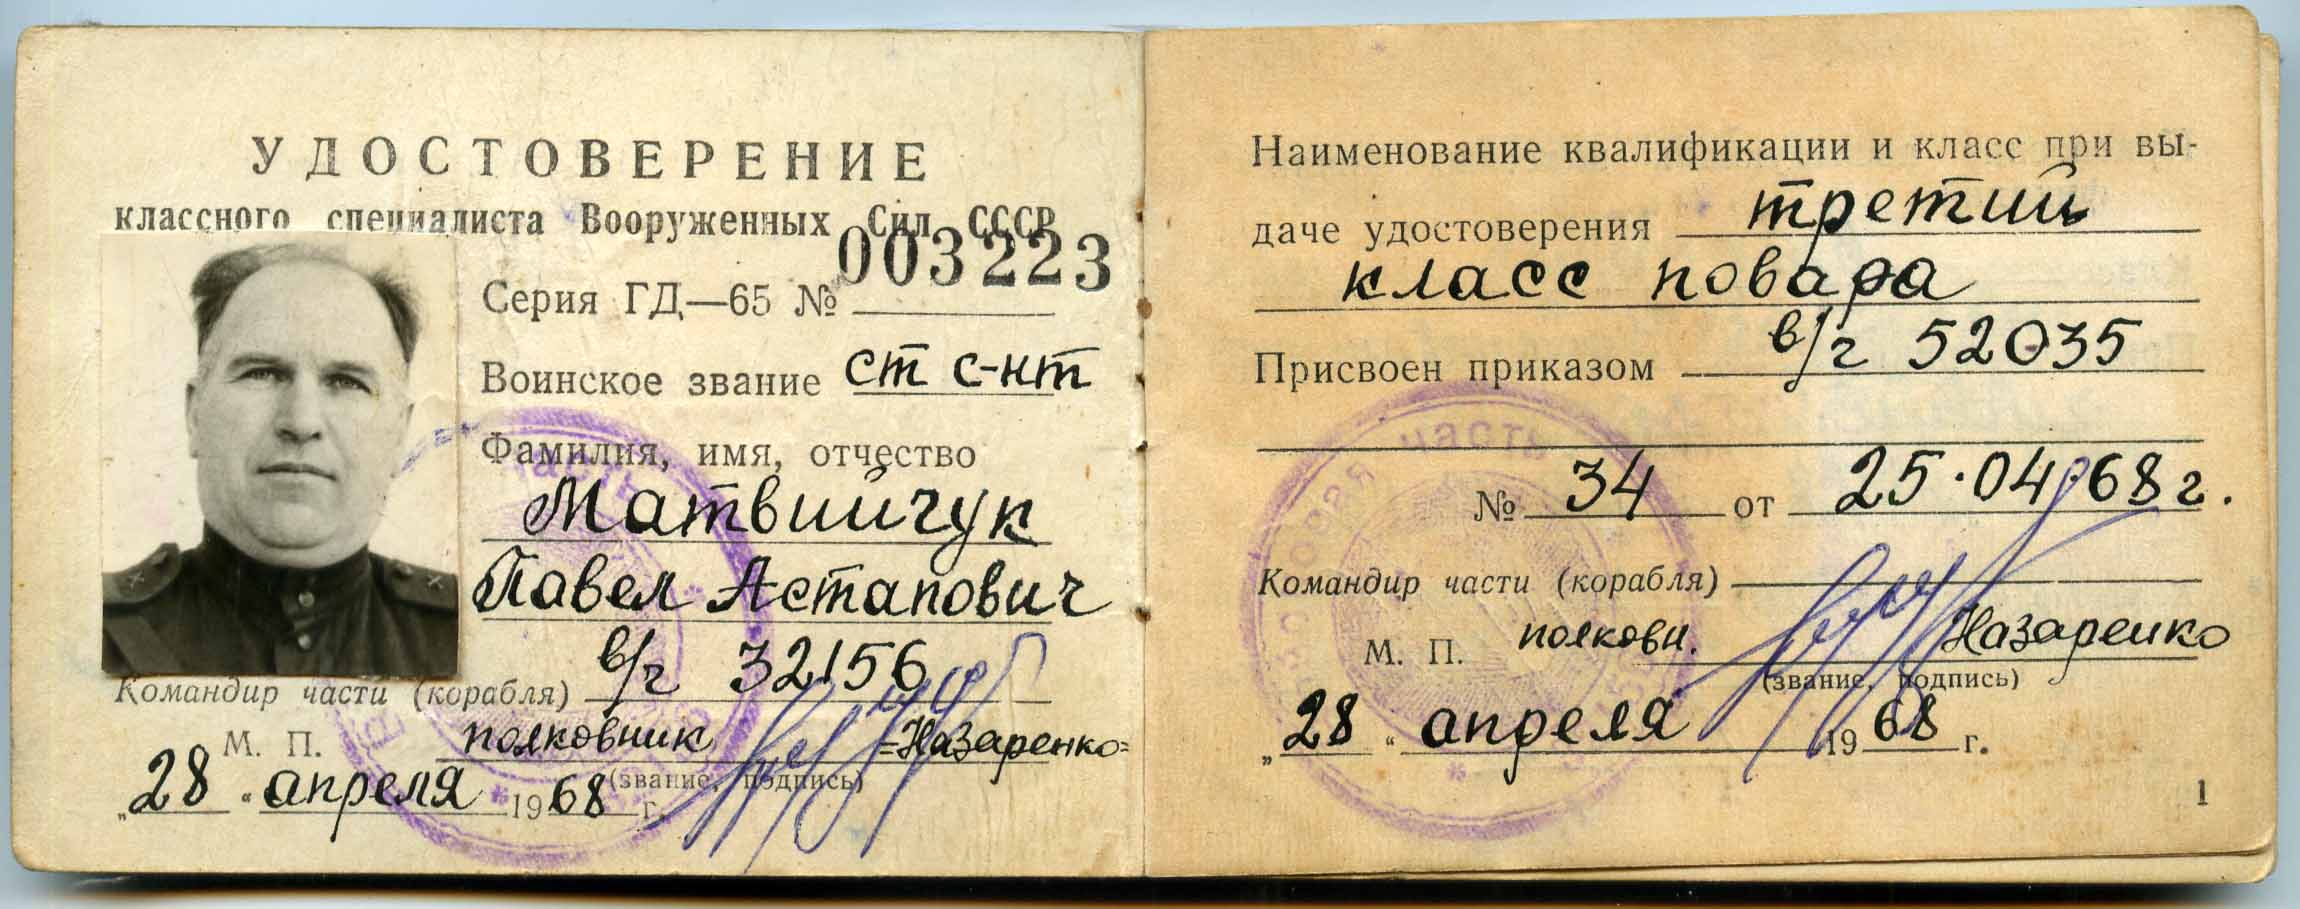 УДОСТОВЕРЕНИЕ
классного специалиста Вооруженных Сил СССР
Серия ГД—65 № 003223
Воинское звание ст с-нт
Фамилия, имя, отчество
Матвийчук
Павел Астапович
в/ч 32156
Командир части (корабля)
М. П. полковник =Назаренко=
(звание, подпись)
„28“ апреля 1968 г.
Наименование квалификации и класс при вы-
даче удостоверения третий
класс повара
Присвоен приказом в/ч 52035
№ 34 от 25.04.68г.
Командир части (корабля)
М. П. полковн. Назаренко
(звание, подпись)
„28“ апреля 1968 г.
1
часть